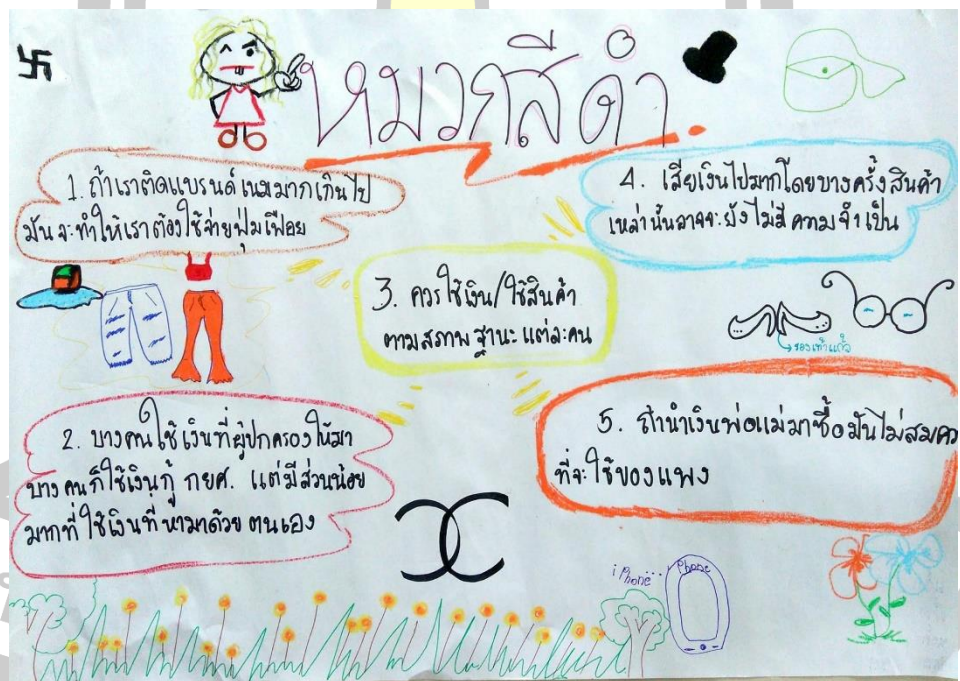 หมวกสีดำ
1. ถ้าเราติดแบรนด์เนมมากเกินไป
มันจะทำให้เราต้องใช้จ่ายฟุ่มเฟือย
4. เสียเงินไปมากโดยบางครั้งสินค้า
เหล่านั้นอาจจะยังไม่มีความจำเป็น
3. ควรใช้เงิน/ใช้สินค้า
ตามสภาพฐานะแต่ละคน
รองเท้าแก้ว
2. บางคนใช้เงินที่ผู้ปกครองให้มา
บางคนก็ใช้เงินกู้ กยศ. แต่มีส่วนน้อย
มากที่ใช้เงินที่หามาด้วยตนเอง
5. ถ้านำเงินพ่อแม่มาซื้อมันไม่สมคว
ที่จะใช้ของแพง
iPhone...
Phone